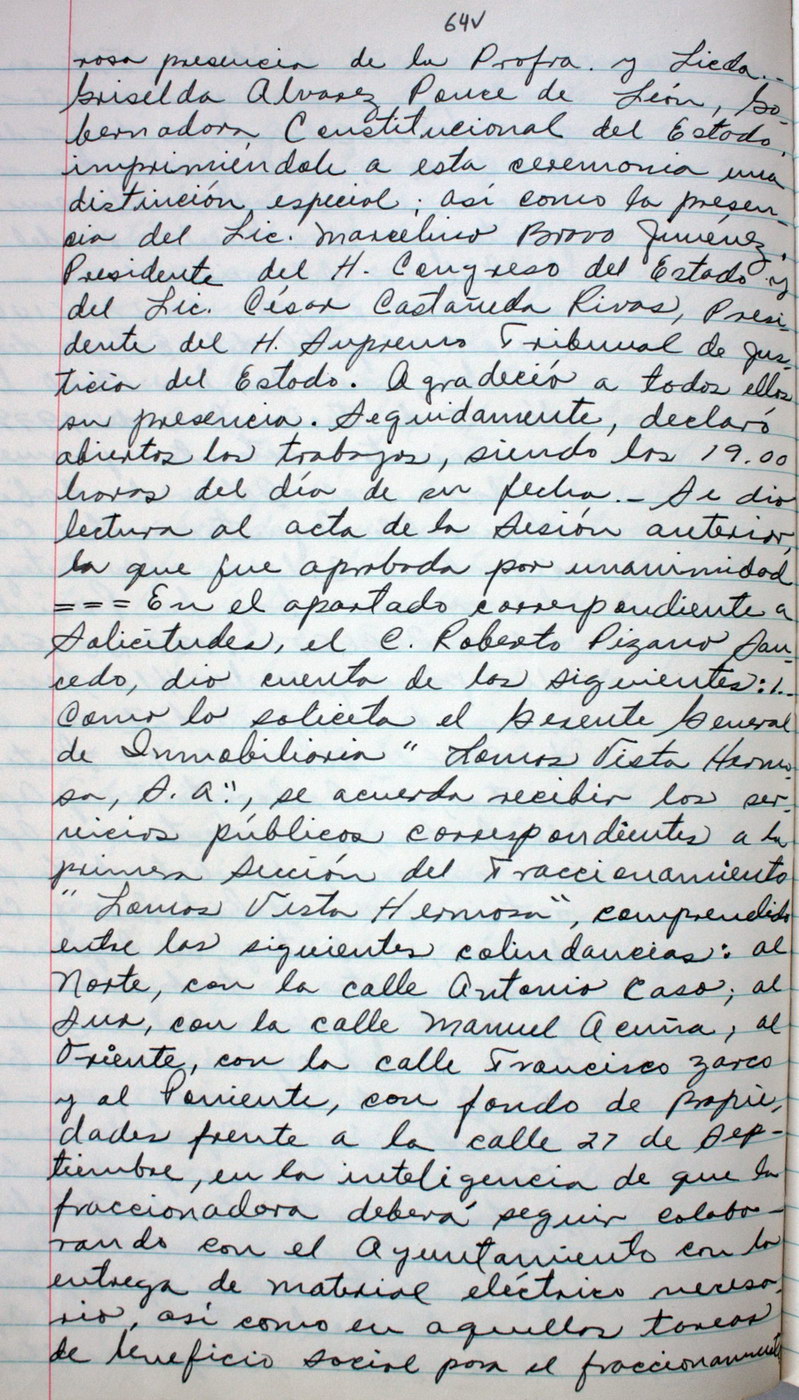 64V
rosa presencia de la Profra. y Licda.-
Griselda Alvarez Ponce de León, Go-
bernadora Constitucional del Estado,
imprimiéndole a esta ceremonia una
distinción especial; así como la presen-
cia del Lic. Marcelino Bravo Jiménez,
Presidente del H. Congreso del Estado y
del Lic. César Castañeda Rivas, Presi-
dente del H. Supremo Tribunal de Jus-
ticia del Estado. Agradeció a todos ellos
su presencia. Seguidamente, declaró
abiertos los trabajos, siendo las 19.00
horas del día de su fecha.- Se dio
lectura al acta de la Sesión anterior,
la que fue aprobada por unanimidad.
=== En el apartado correspondiente a
Solicitudes, el C. Roberto Pizano Sau-
cedo, dio cuenta de las siguientes: 1.-
Como lo solicita el Gerente General
de Inmobiliaria "Lomas Vista Hermo-
sa, S. A.", se acuerda recibir los ser-
vicios públicos correspondientes a la
primera Sección del Fraccionamiento
"Lomas Vista Hermosa", comprendido
entre las siguientes colindancias: al
Norte, con la calle Antonio Caso; al
Sur, con la calle Manuel Acuña; al
Oriente, con la calle Francisco Zarco
y al Poniente, con fondo de propie-
dades frente a la calle 27 de Sep-
tiembre, en la inteligencia de que la
fraccionadora deberá seguir colabo-
rando con el Ayuntamiento con la
entrega de material eléctrico necesa-
rio, así como en aquellas tareas
de beneficio social para el fraccionamiento